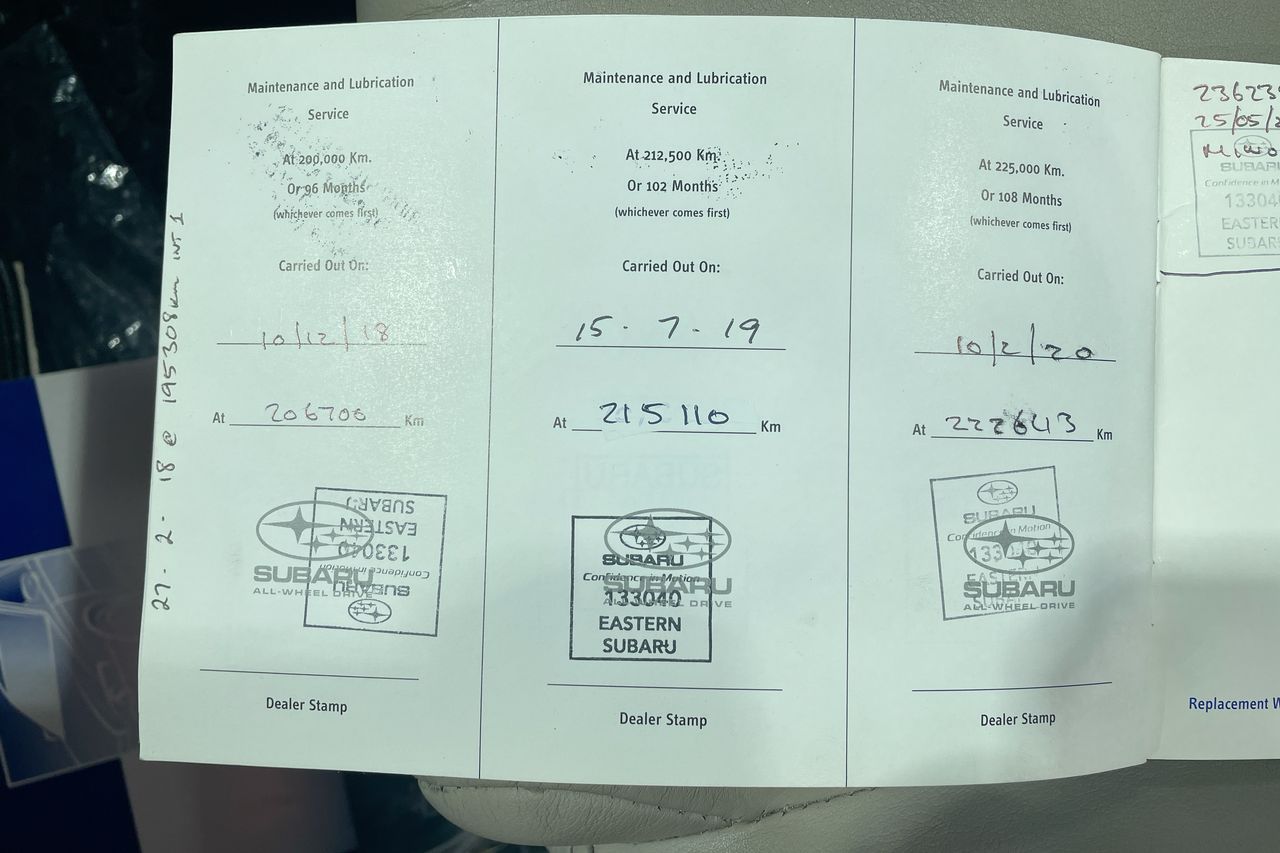 27 - 2 - 18 @ 195308km INT 1
Maintenance and Lubrication
Service
At 200,000 Km.
Or 96 Months
(whichever comes first)
Carried Out On:
10/12/18
At 206706 Km
SUBARU
ALL-WHEEL DRIVE
SUBARU
Confidence in Motion
133040
EASTERN
SUBARU
Dealer Stamp
Maintenance and Lubrication
Service
At 212,500 Km.
Or 102 Months
(whichever comes first)
Carried Out On:
15 - 7 - 19
At 215110 Km
SUBARU
ALL-WHEEL DRIVE
SUBARU
Confidence in Motion
133040
EASTERN
SUBARU
Dealer Stamp
Maintenance and Lubrication
Service
At 225,000 Km.
Or 108 Months
(whichever comes first)
Carried Out On:
10/2/20
At 222643 Km
SUBARU
Confidence in Motion
EASTERN
SUBARU
ALL-WHEEL DRIVE
Dealer Stamp
23623
25/05/2
SUBARU
Confidence in M
13304
EASTER
SUBAR
Replacement W